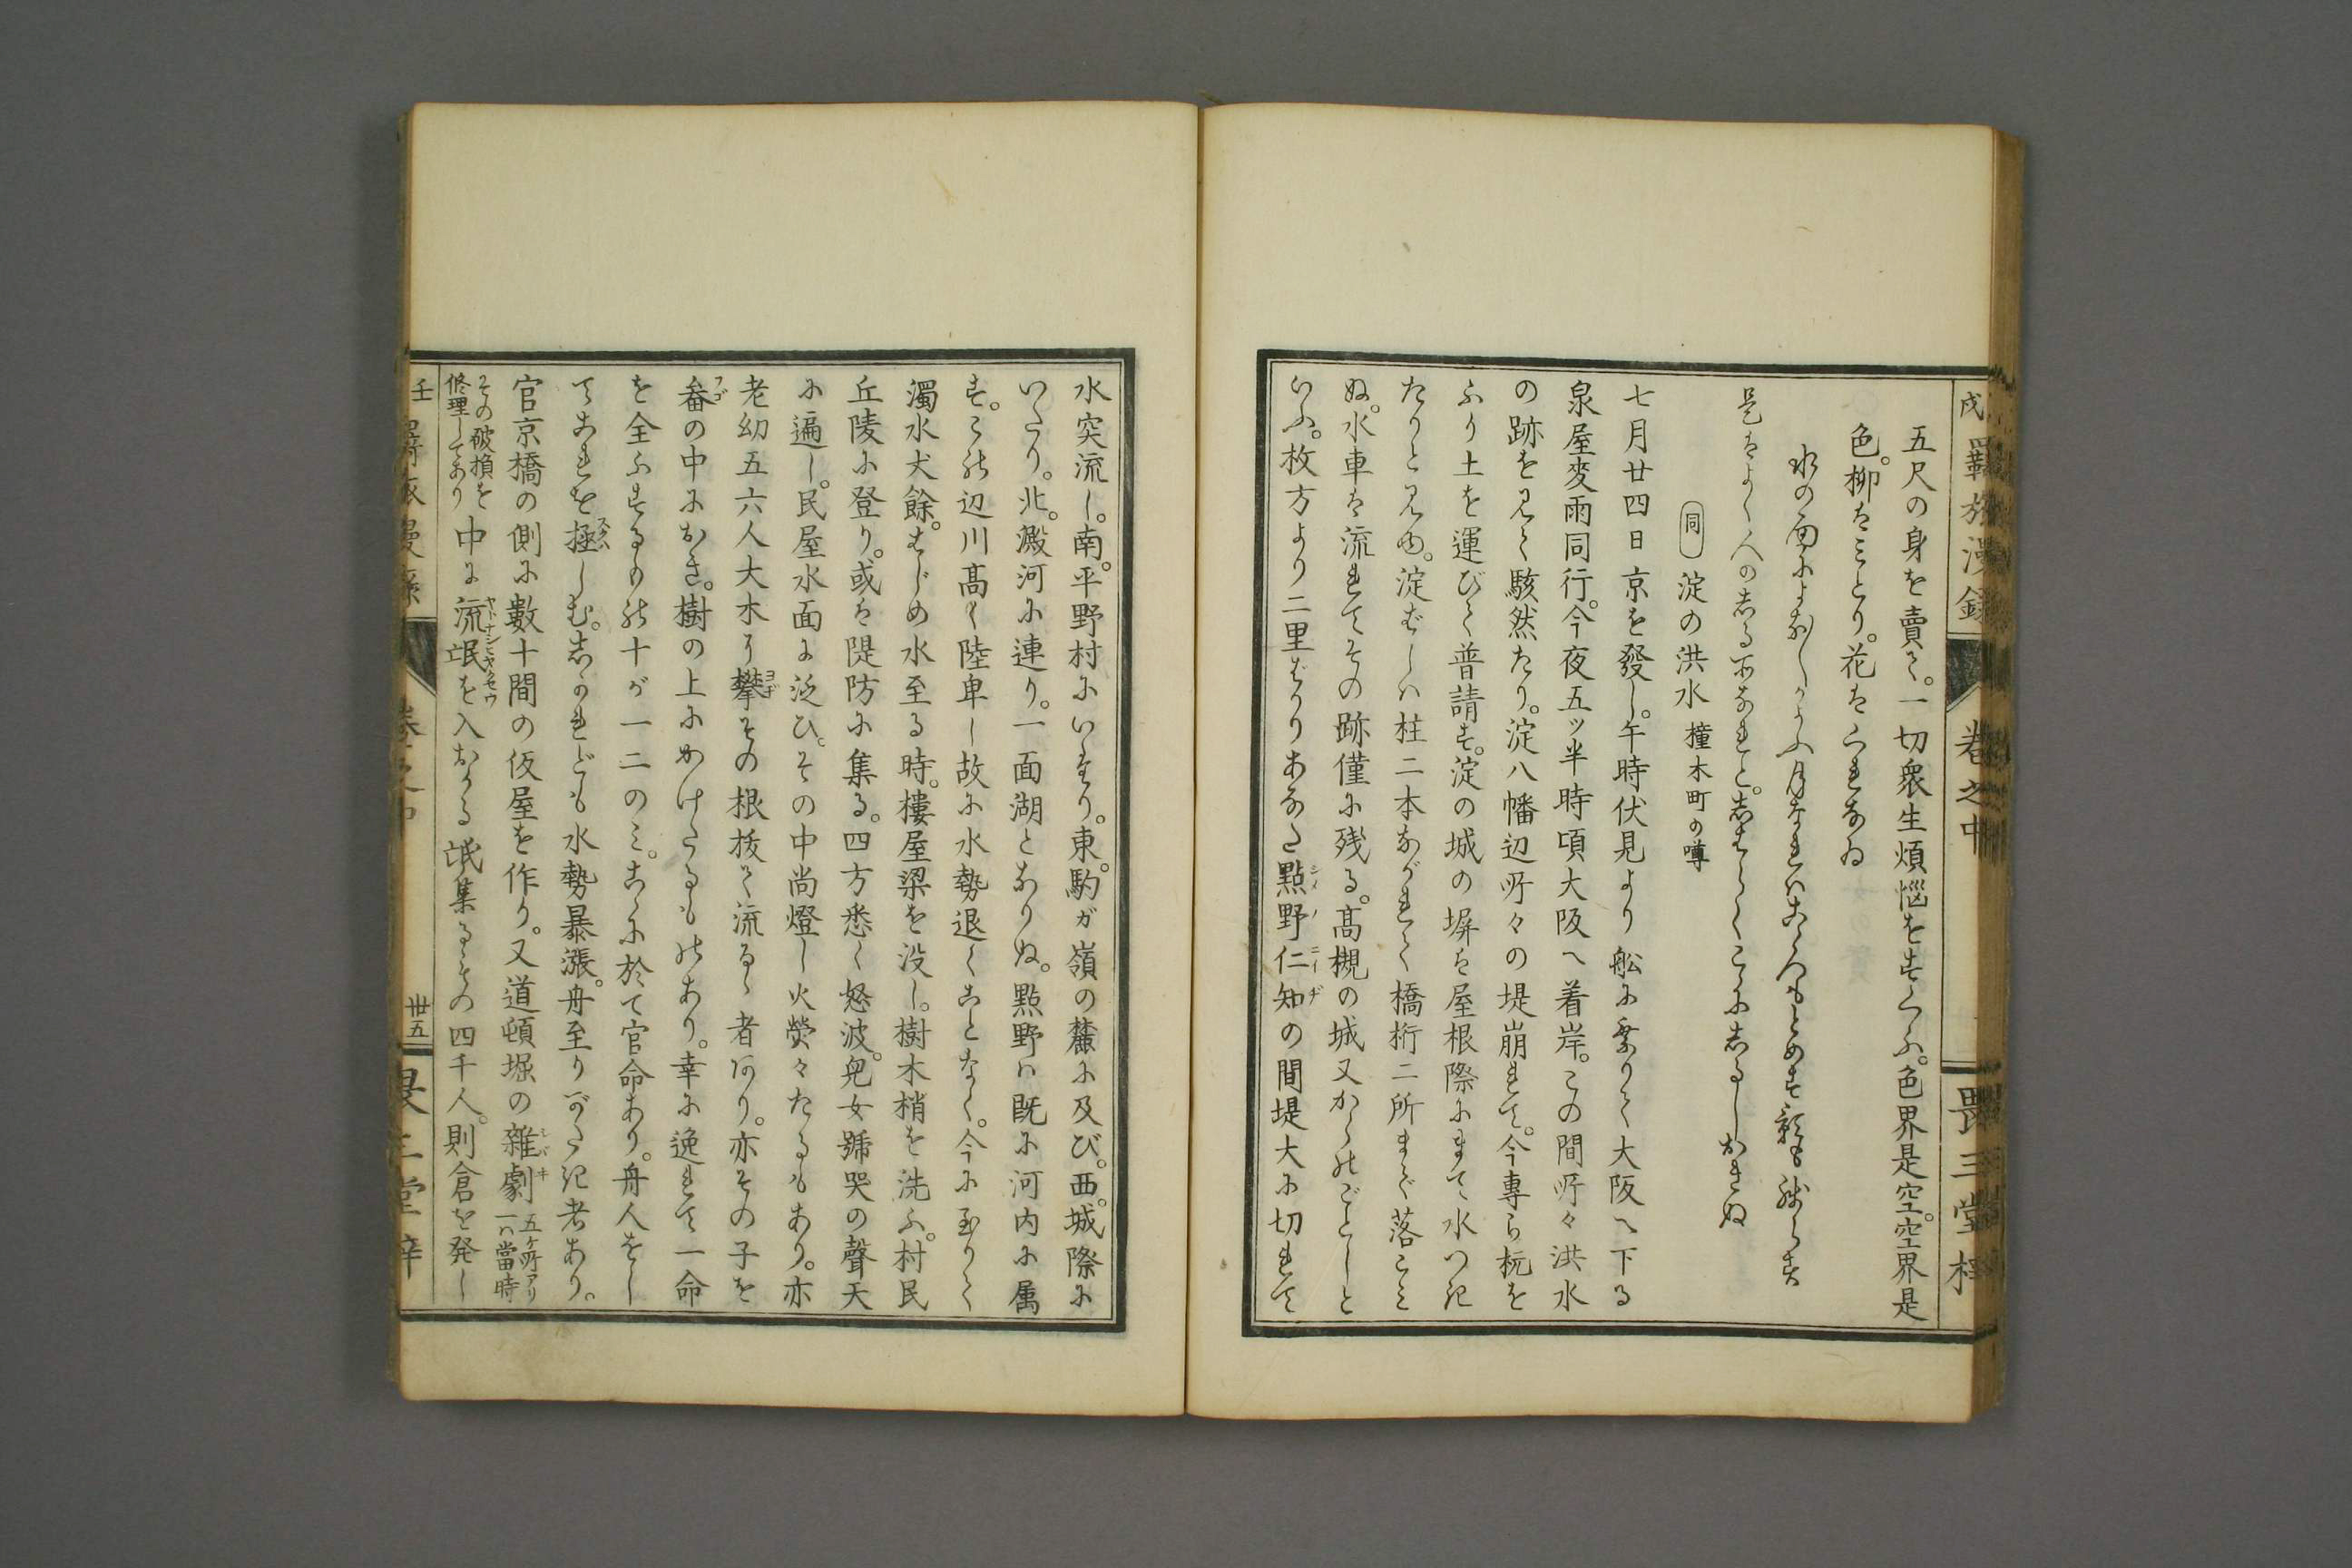 五尺の身を賣て。一切衆生煩悩をすくふ。色界是空。空界是
色。柳はみとり。花はくれなゐ
水の面によなよなかよふ月なれは
是はよく人のしる所なれと。しはらくこゝにしるしおきぬ
同 淀の洪水 撞木町の噂
七月廿四日京を發し。午時伏見より舩に乗りて大阪へ下る
泉屋麥雨同行。今夜五ッ半時頃大阪へ着岸。この間所々洪水
の跡を見て駭然たり。淀八幡辺所々の堤崩れて。今專ら杭を
ふり土を運びて普請す。淀の城の塀は屋根際にまて水つき
たりと見ゆ。淀ばしハ柱二本ながれて橋桁二所まで落こみ
ぬ。水車は流れてその跡僅に残る。髙槻の城又かくのごとしと
いふ。枚方より二里ばかりあなた點野仁知の間堤大に切れて
水突流し。南。平野村にいたり。東。駒が嶺の麓に及び。西。城際に
いたり。北。澱河に連り。一面湖となりぬ。點野ハ既に河内に属
す。この辺川髙く陸卑し故に水勢退くことなく。今に至りて
濁水丈餘。はじめ水至る時。樓屋梁を没し。樹木梢を洗ふ。村民
丘陵に登り。或は隄防に集る。四方悉く怒波。兒女號哭の聲天
に遍し。民屋水面に泛ひ。その中尚燈し火熒々たるもあり。亦
老幼五六人大木に攀その根抜て流るゝ者あり。亦その子を
畚の中におき。樹の上にかけたるものあり。幸に逸れて一命
を全ふするもの十が一二のみ。こゝに於て官命あり。舟人をし
てこれを拯しむ。しかれども水勢暴漲。舟至りがたき者あり。
官京橋の側に數十間の仮屋を作り。又道頓堀の雜劇 五ケ所アリ一ハ當時
その破損を修理してあり 中に流氓を入おかる氓集るその四千人。則倉を発し
戌 羇旅漫錄 卷之中 畏三堂梓
壬 卅五